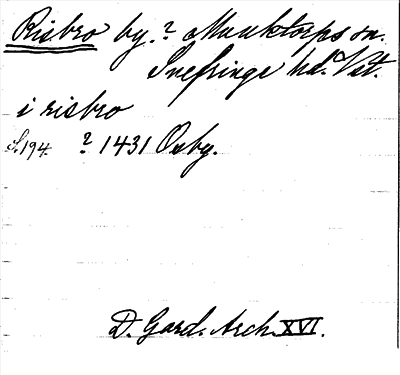 Risbro by.? Munktorps sn.
Snefringe hd. Vst.
i risbro
S.194. ? 1431 Oxby.
D. Gard. Arch. XVI.